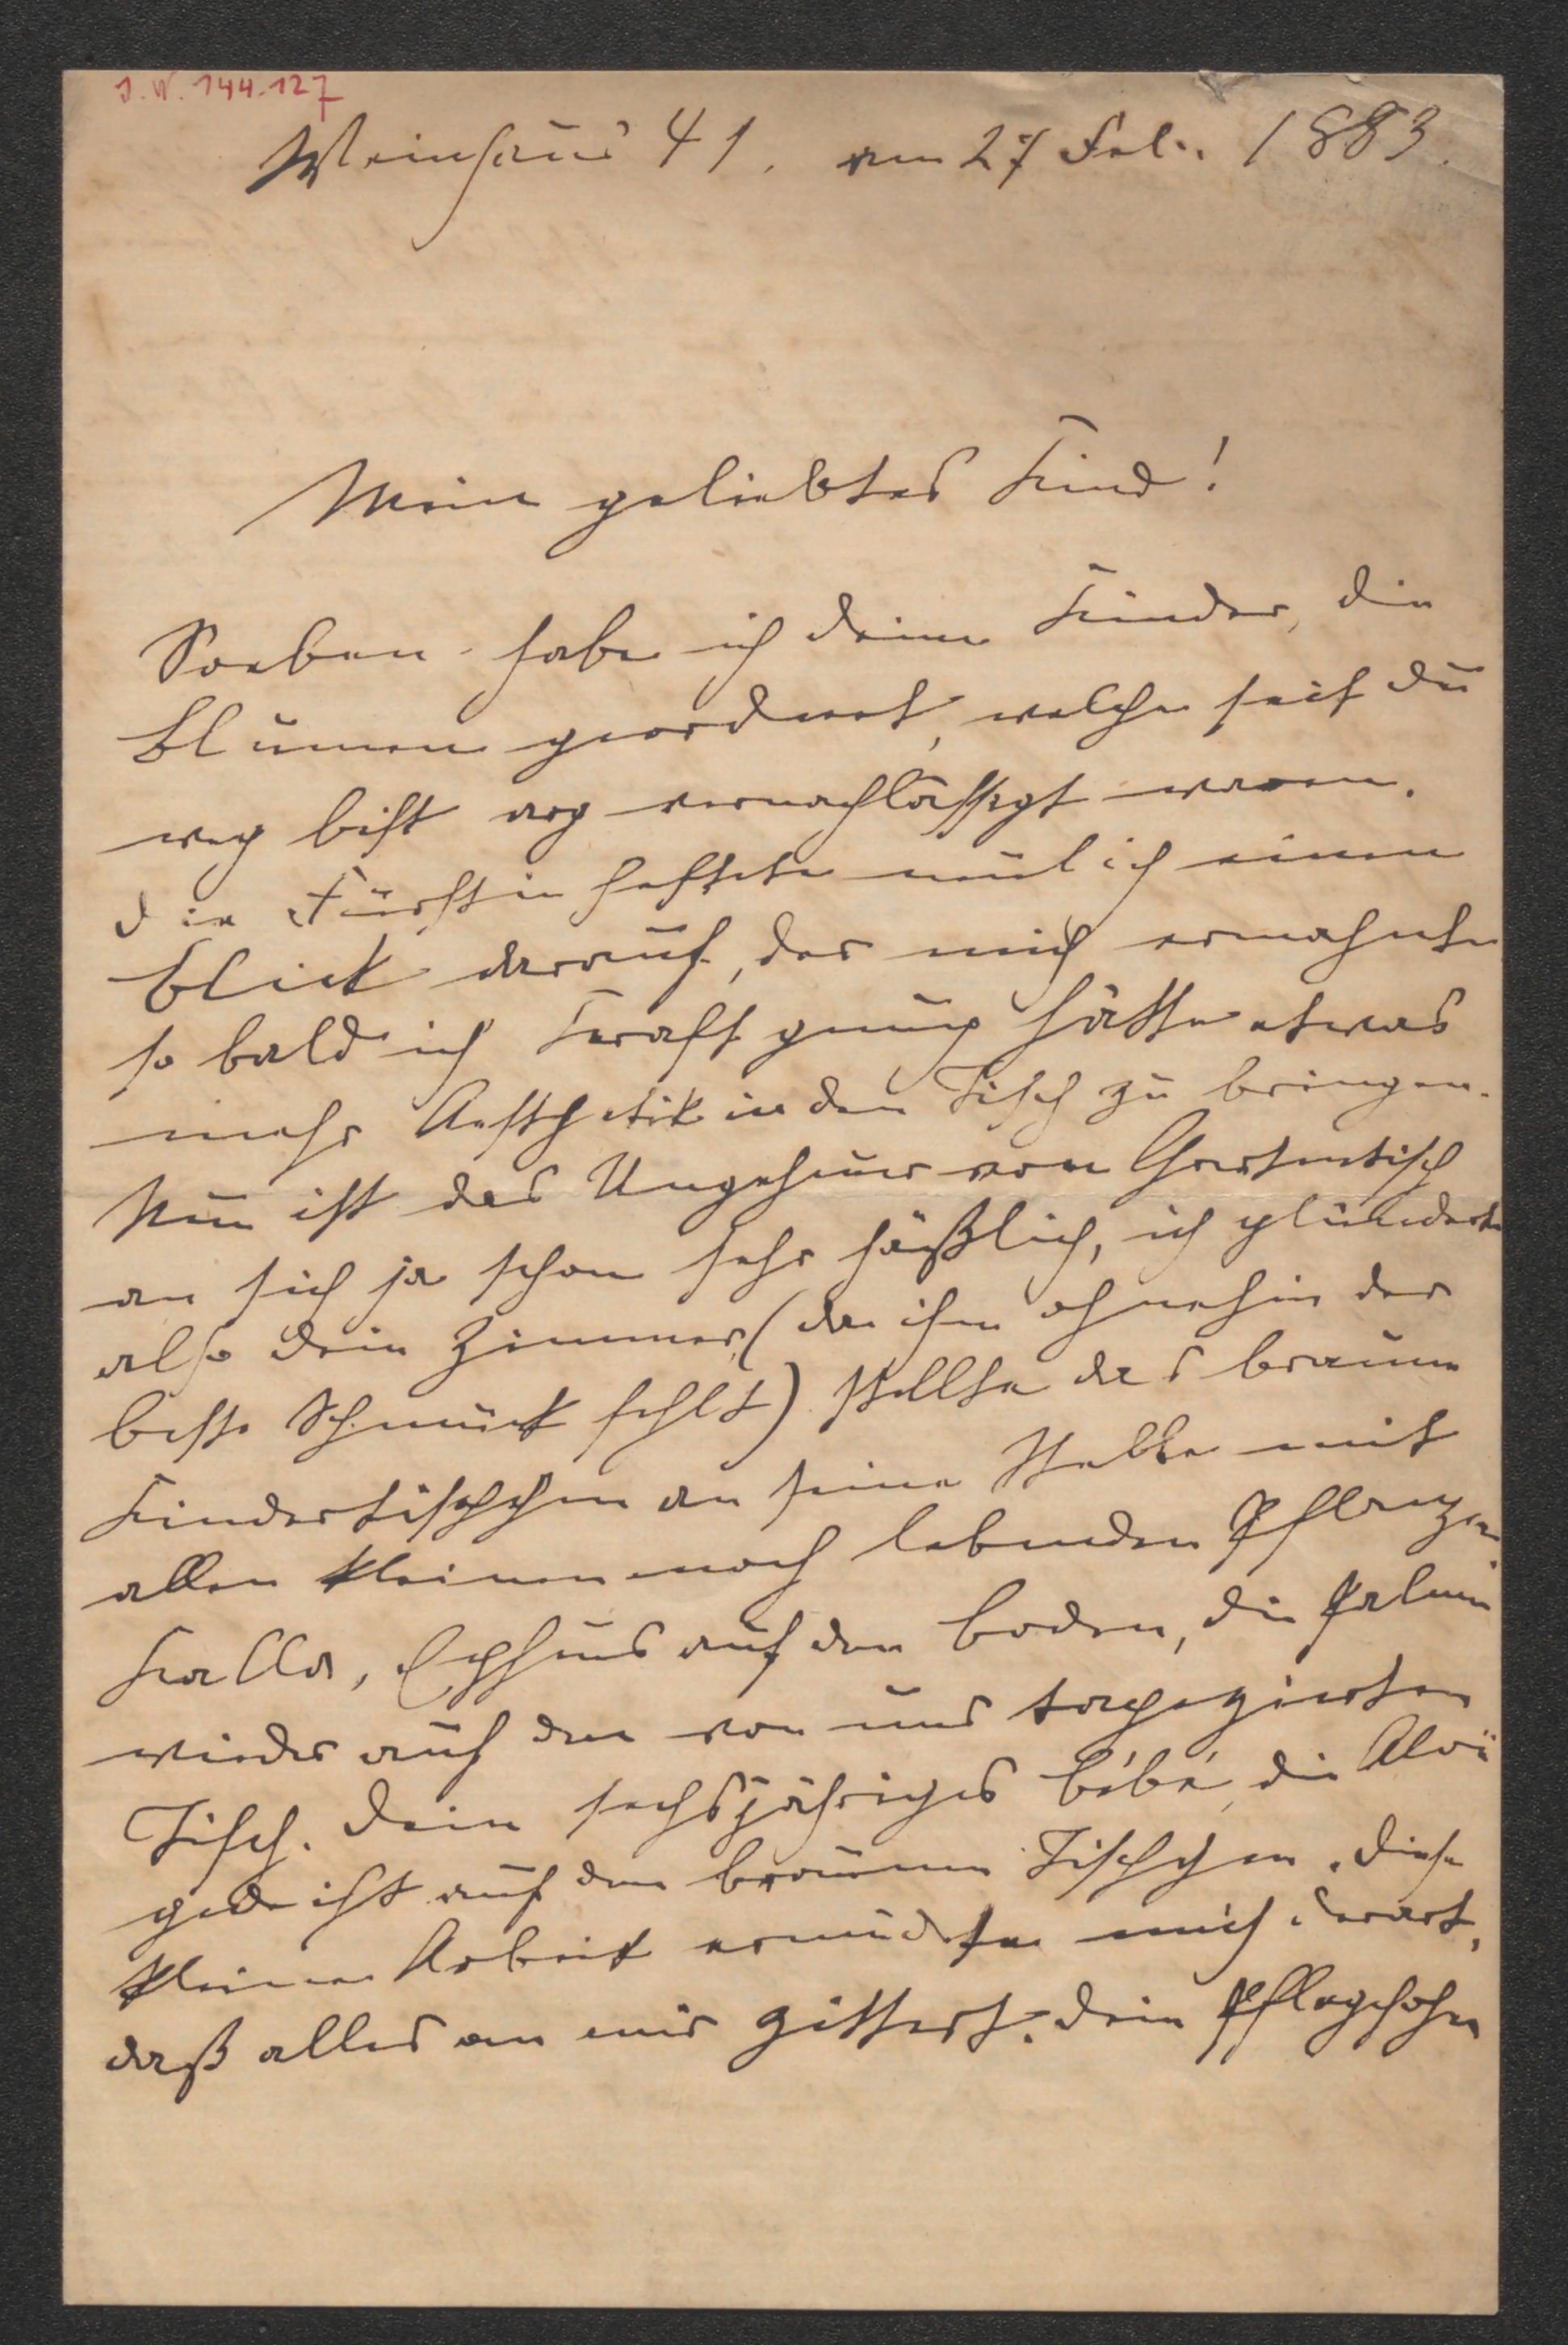 J.N. 144.127
Weinhaus 41. am 27 Feb. 1883.
Mein geliebtes Kind!
Soeben habe ich deine Kinder, die
Blumen geordnet, welche seit du
weg bist arg vernachlässigt waren.
die Fürstin heftete neulich einen
Blick darauf, der mich ermahnte
so bald ich Kraft genug hätte etwas
mehr Aesthetik in den Tisch zu bringen.
Nun ist das Ungeheuer von Gartentisch
an sich ja schon sehr häßlich, ich plünderte
also dein Zimmer, (da ihm ohnehin der
beste Schmuck fehlt) stellte das braune
Kindertischchen an seine Stelle mit
allen kleinen noch lebenden Pflanzen
Kalla, Epheus auf den Boden, die Palme
wieder auf den von uns tapezierten
Tisch. Dein sechsjähriges bébé, die Aloë
gedeiht auf dem braunen Tischchen. Diese
kleine Arbeit ermüdete mich derart,
daß alles an mir zittert. Dein Pflegesohn